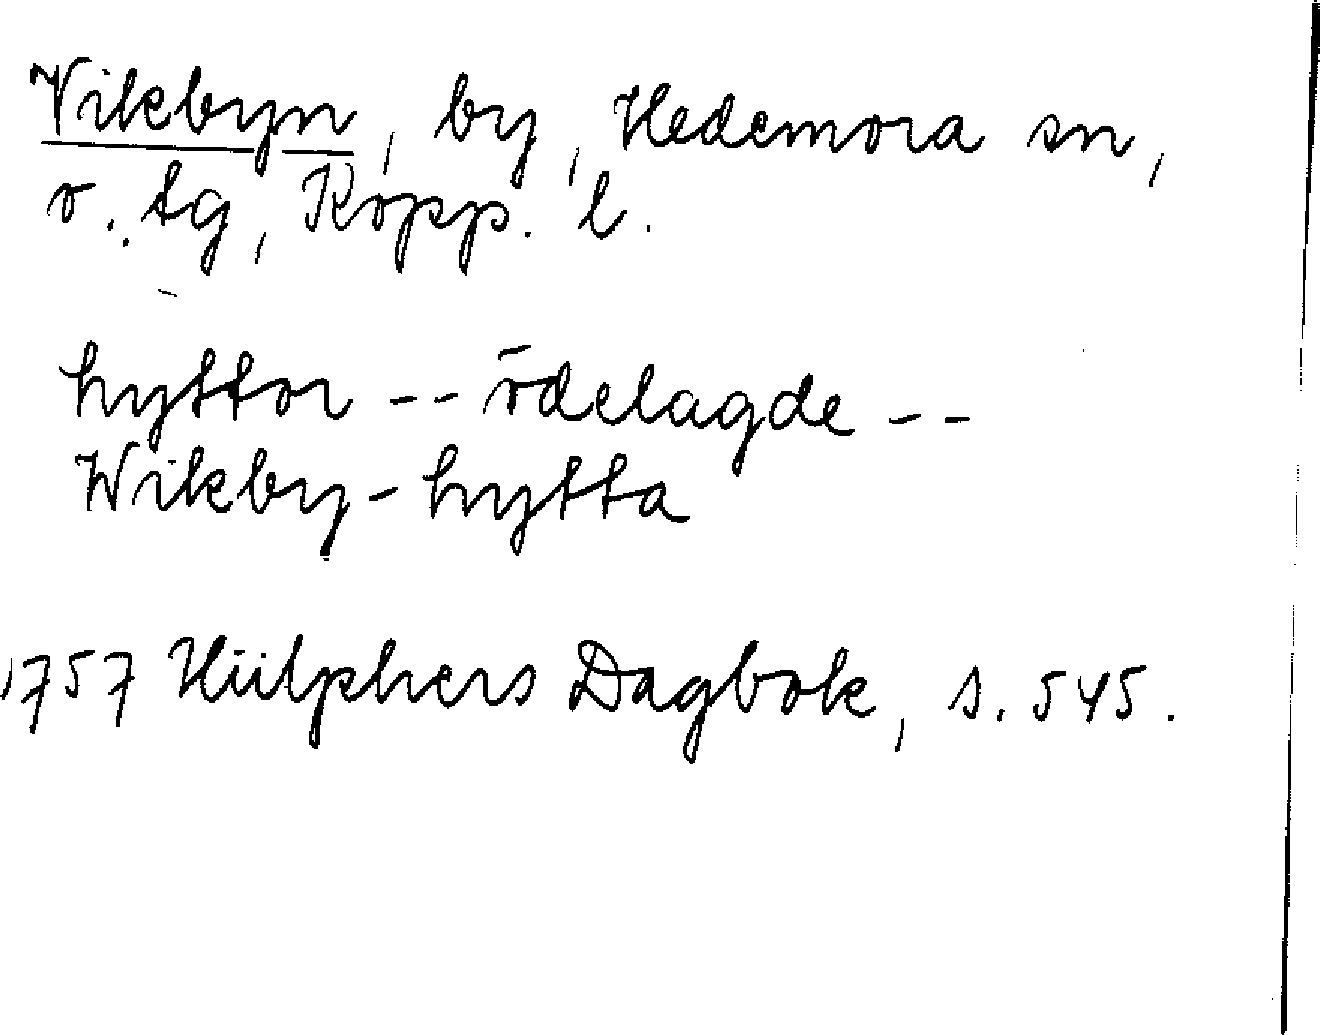 Vikbyn, by, Hedemora sn,
o. tg, Kopp. l.
hyttor -- ödelagde --
Wikby-hytta
1757 Hülphers Dagbok, s. 545.